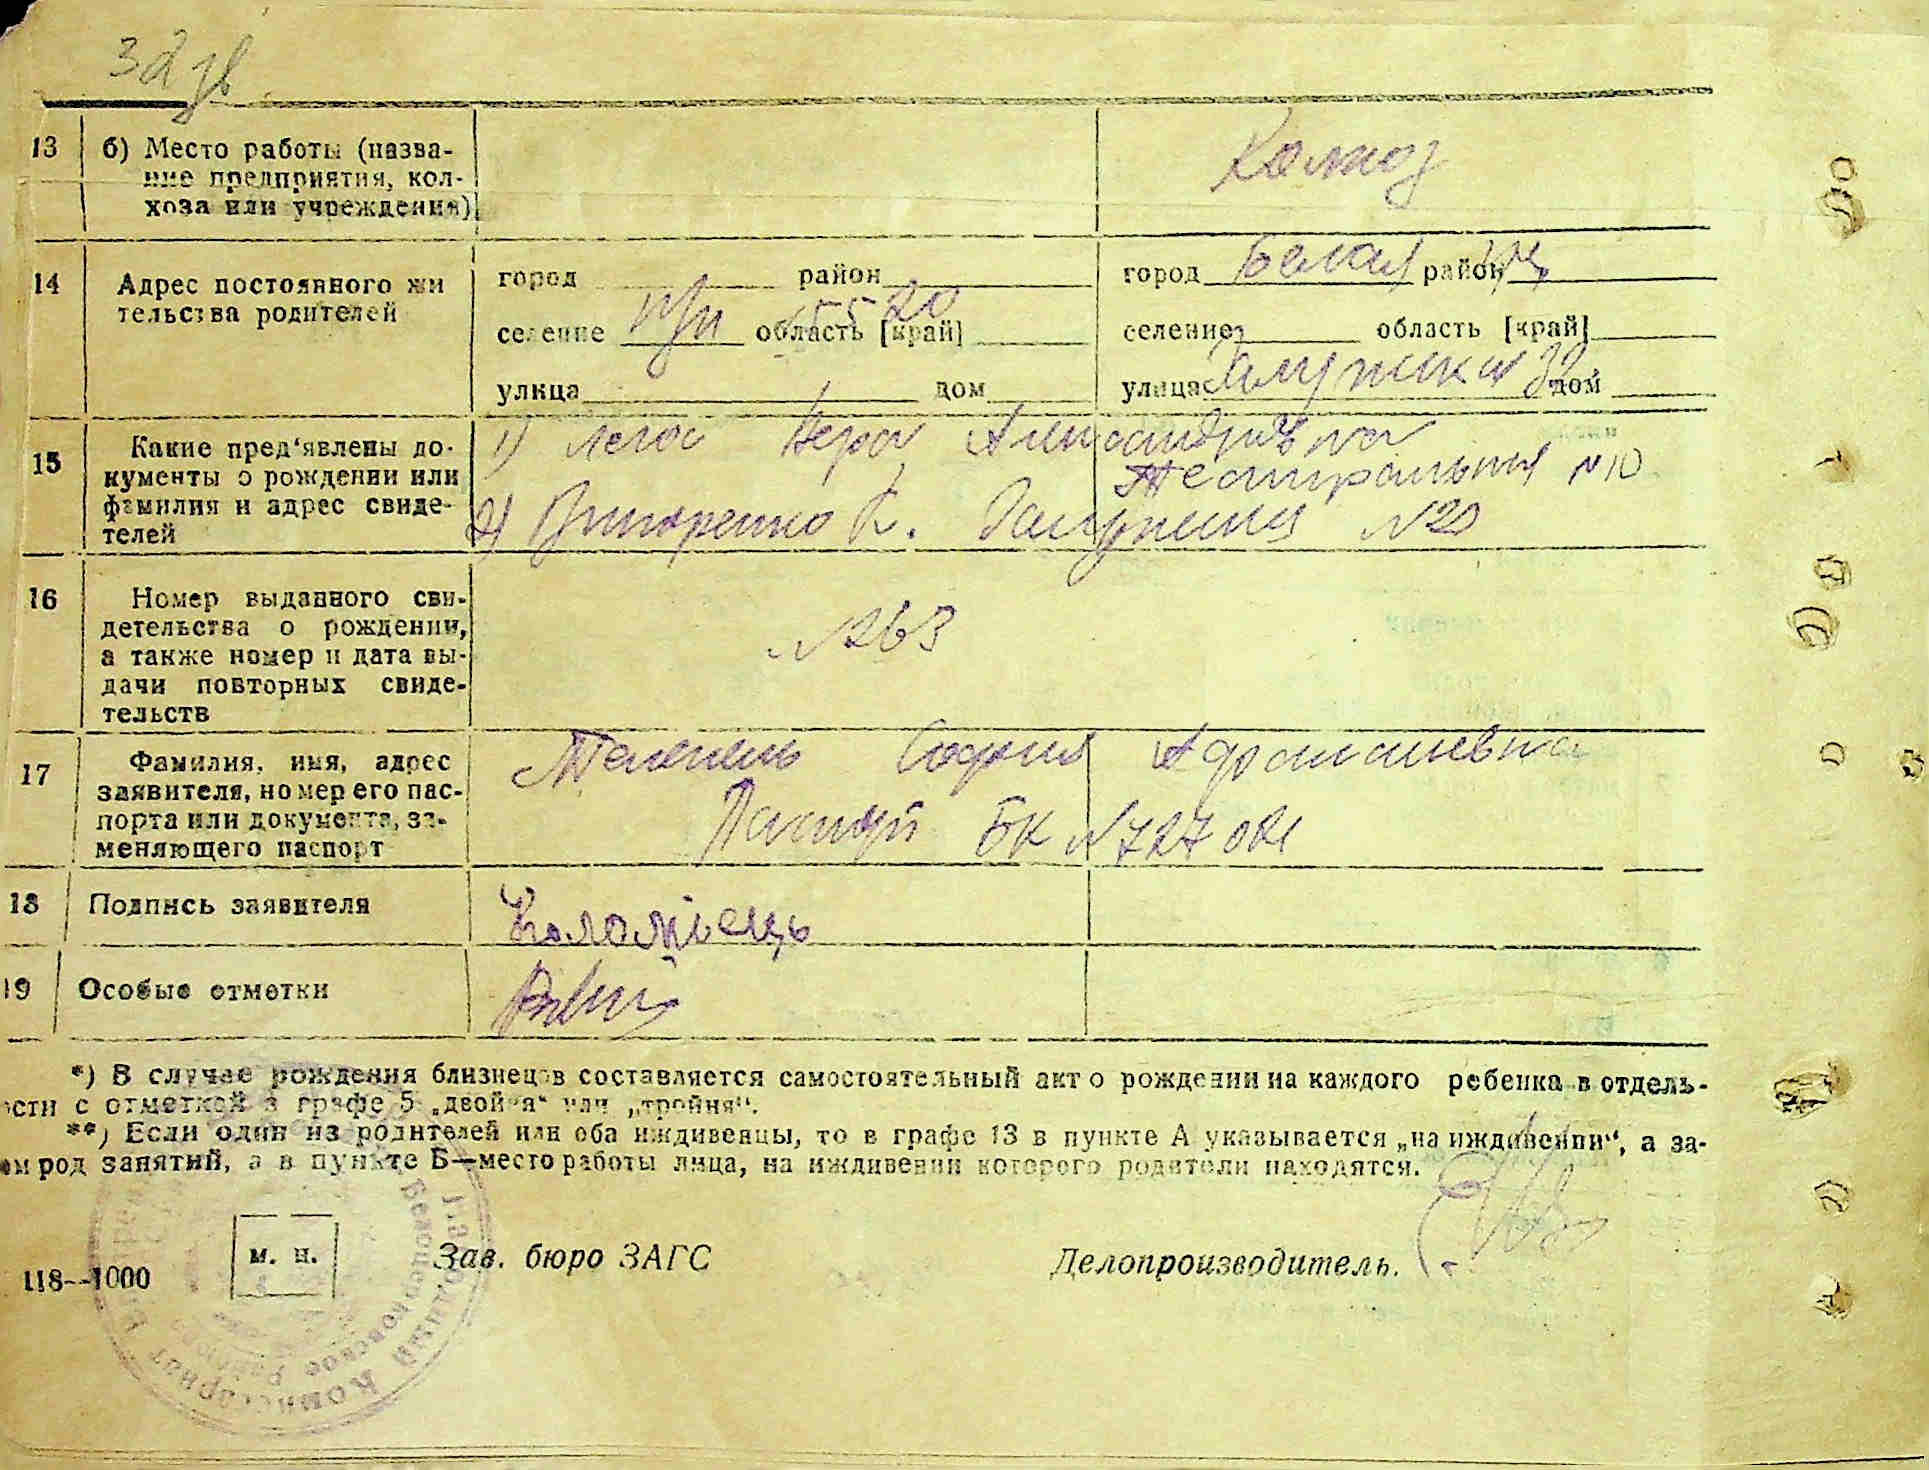 32
13 б) Место работы (назва-
ние предприятия, кол-
хоза или учреждения)
Колхоз
14 Адрес постоянного жи
тельства родителей
город район
селение п/п область [край] 45520
улица дом
город Белая Цер район
селение область [край]
улица дом 32
15 Какие пред'явлены до-
кументы о рождении или
фамилия и адрес свиде-
телей
1) Вера Александровна
Театральная №10
2) К. №20
16 Номер выданного сви-
детельства о рождении,
а также номер и дата вы-
дачи повторных свиде-
тельств
№263
17 Фамилия, имя, адрес
заявителя, номер его пас-
порта или документа, за-
меняющего паспорт
София
Паспорт БК №727021
18 Подпись заявителя
Коломіець
19 Особые отметки
*) В случае рождения близнецов составляется самостоятельный акт о рождении на каждого ребенка в отдель-
ости с отметкой в графе 5 „двойня“ или „тройня“.
**) Если один из родителей или оба иждивенцы, то в графе 13 в пункте А указывается „на иждивении“, а за-
ем род занятий, а в пункте Б—место работы лица, на иждивении которого родители находятся.
118--1000
м. п.
Зав. бюро ЗАГС
Делопроизводитель.
Народный Комиссариат
Белоцерковское Районное